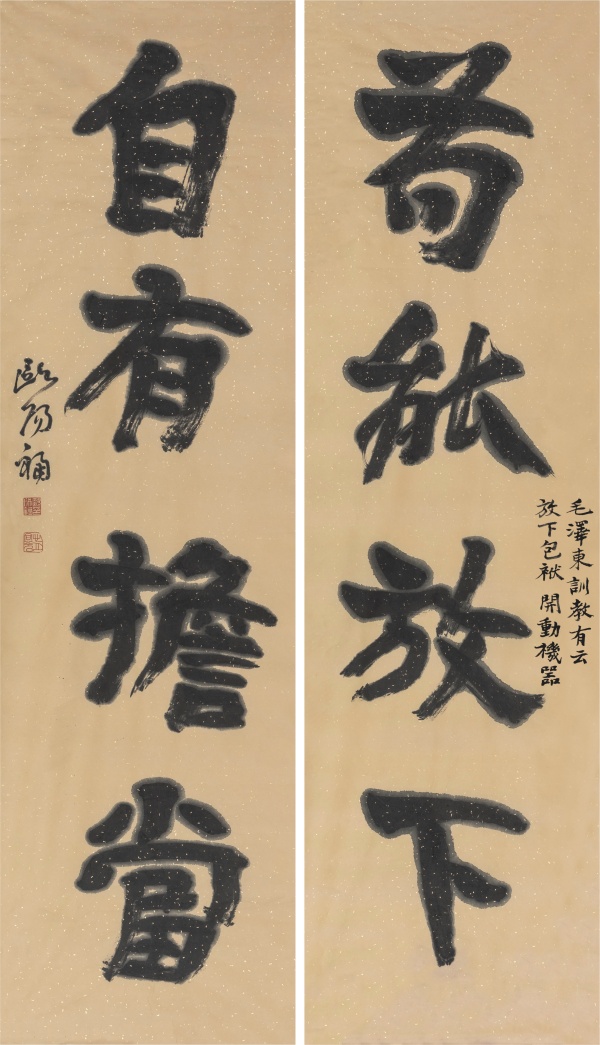 苟能放下
毛澤東訓教有云
放下包袱 開動機器
自有擔當
歐陽